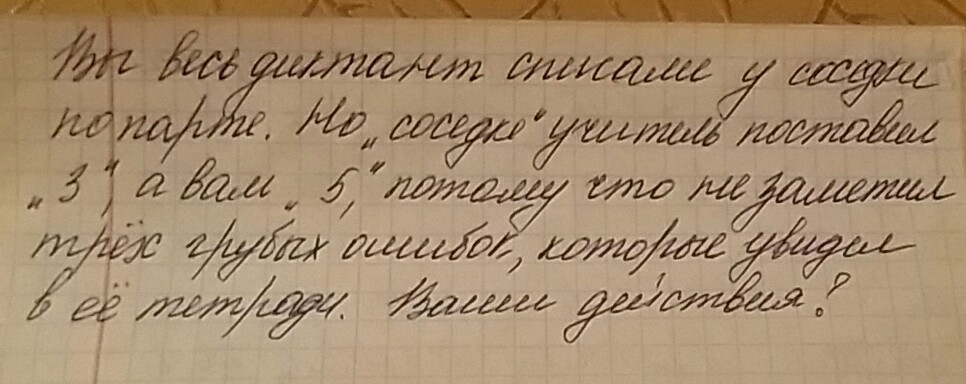 Вы весь диктант списали у соседки
по парте. Но „соседке" учитель поставил
„3", а вам „5", потому что не заметил
трёх грубых ошибок, которые увидел
в её тетради. Ваши действия?